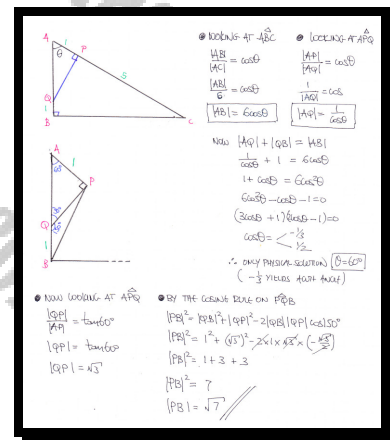 A
1
P
θ
5
Q
1
B
C
• LOOKING AT AB̂C
|AB|/|AC| = cosθ
|AB|/6 = cosθ
|AB| = 6cosθ
• LOOKING AT AP̂Q
|AP|/|AQ| = cosθ
1/|AQ| = cosθ
|AQ| = 1/cosθ
NOW |AQ| + |QB| = |AB|
1/cosθ + 1 = 6cosθ
1 + cosθ = 6cos²θ
6cos²θ - cosθ - 1 = 0
(3cosθ + 1)(2cosθ - 1) = 0
cosθ = < -1/3
1/2
∴ ONLY PHYSICAL SOLUTION θ = 60°
(-1/3 YIELDS ANGLE)
A
60°
1
P
30°
Q
150°
1
B
• NOW LOOKING AT AP̂Q
|QP|/|AP| = tan60°
|QP| = tan60°
|QP| = √3
• BY THE COSINE RULE ON PQ̂B
|PB|² = |QB|² + |QP|² - 2|QB||QP| cos150°
|PB|² = 1² + (√3)² - 2×1×√3×(-√3/2)
|PB|² = 1 + 3 + 3
|PB|² = 7
|PB| = √7